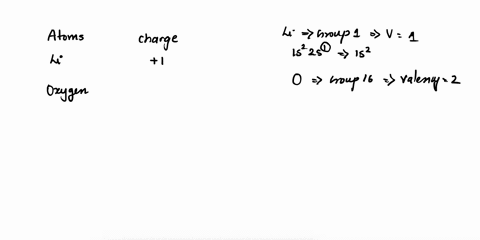 Atoms charge
Li +1
Oxygen
Li ⇒ Group 1 ⇒ V = 1
1s² 2s¹ ⇒ 1s²
O ⇒ Group 16 ⇒ valency = 2